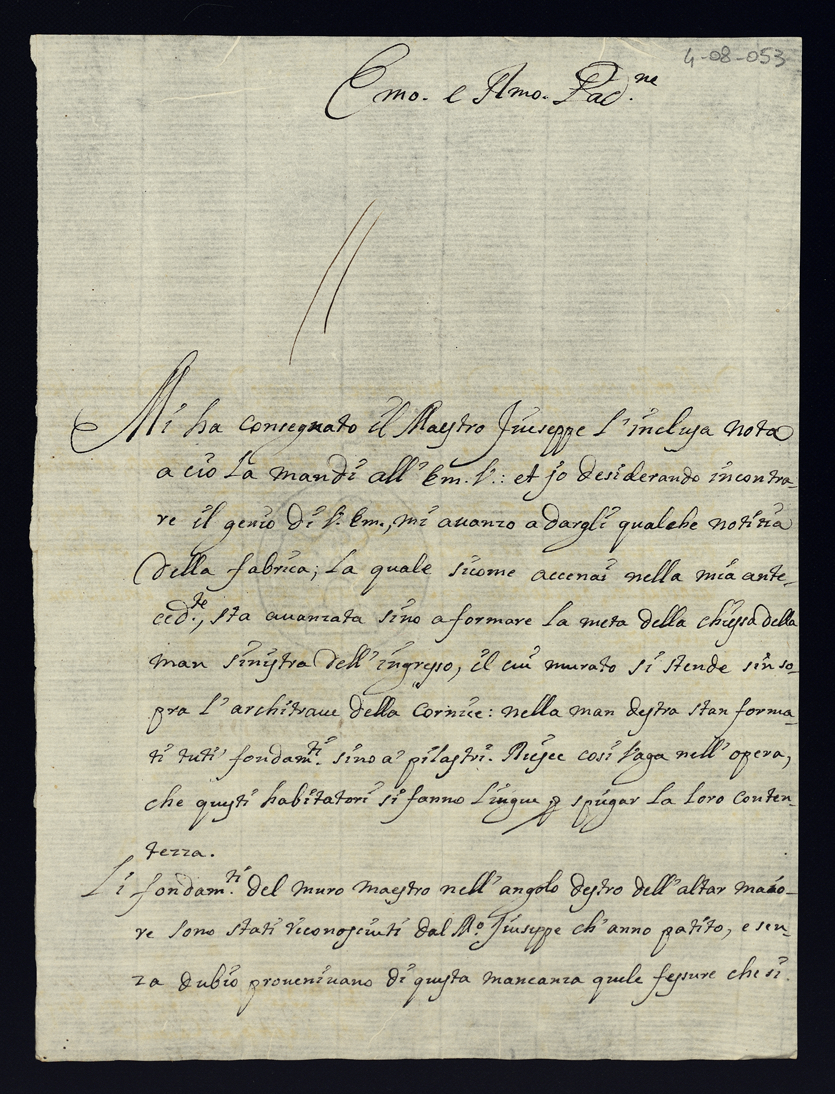 4-08-053
Emo. e Rmo. Pad.ne
Mi ha consegnato il Maestro Giuseppe l'inclusa nota
a ciò la mandi all' Em. V.: et io desiderando incontra-
re il genio di V. Em., mi auanzo a dargli qualche notitia
della fabrica; la quale sicome accenai nella mia ante-
ced.te, sta auanzata sino a formare la meta della chiesa della
man sinistra dell' ingresso, il cui murato si stende sin so-
pra l'architraue della cornice: nella man destra stan forma-
ti tuti' fondam.ti sino a' pilastri. Riesce così vaga nell' opera,
che questi habitatori si fanno lingue p spiegar la loro conten-
tezza.
Li fondam.ti del muro maestro nell' angolo destro dell' altar magio-
re sono stati riconosciuti dal M.o Giuseppe ch' anno patito, e sen-
za dubio proueniuano di questa mancanza quele fessure che si